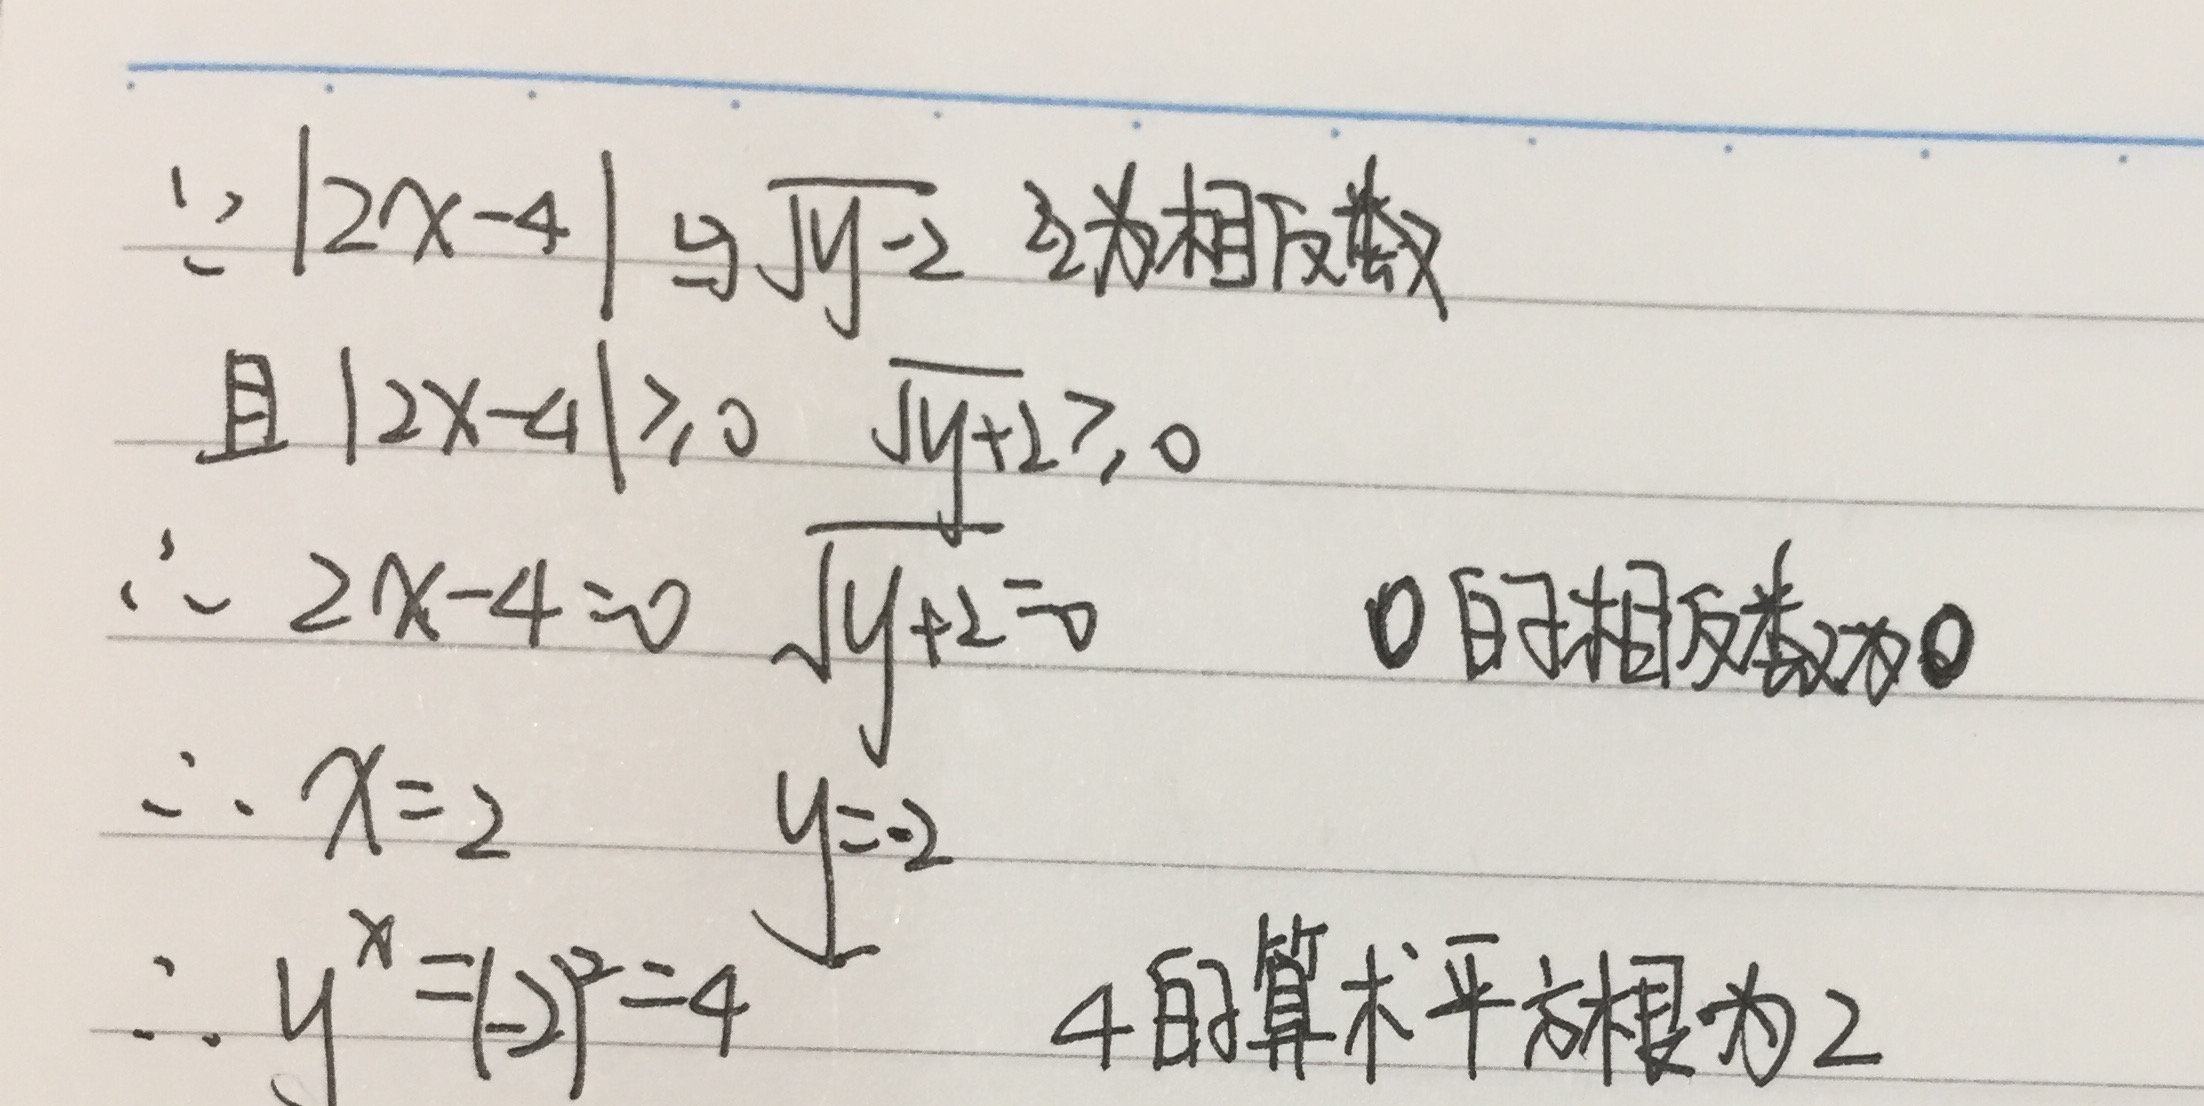 ∵ |2x-4| 与 √y-2 互为相反数
且 |2x-4|≥0 √y+2≥0
∴ 2x-4=0 √y+2=0 0的相反数为0
∴ x=2 y=-2
∴ y^x=(-2)^2=4 4的算术平方根为2